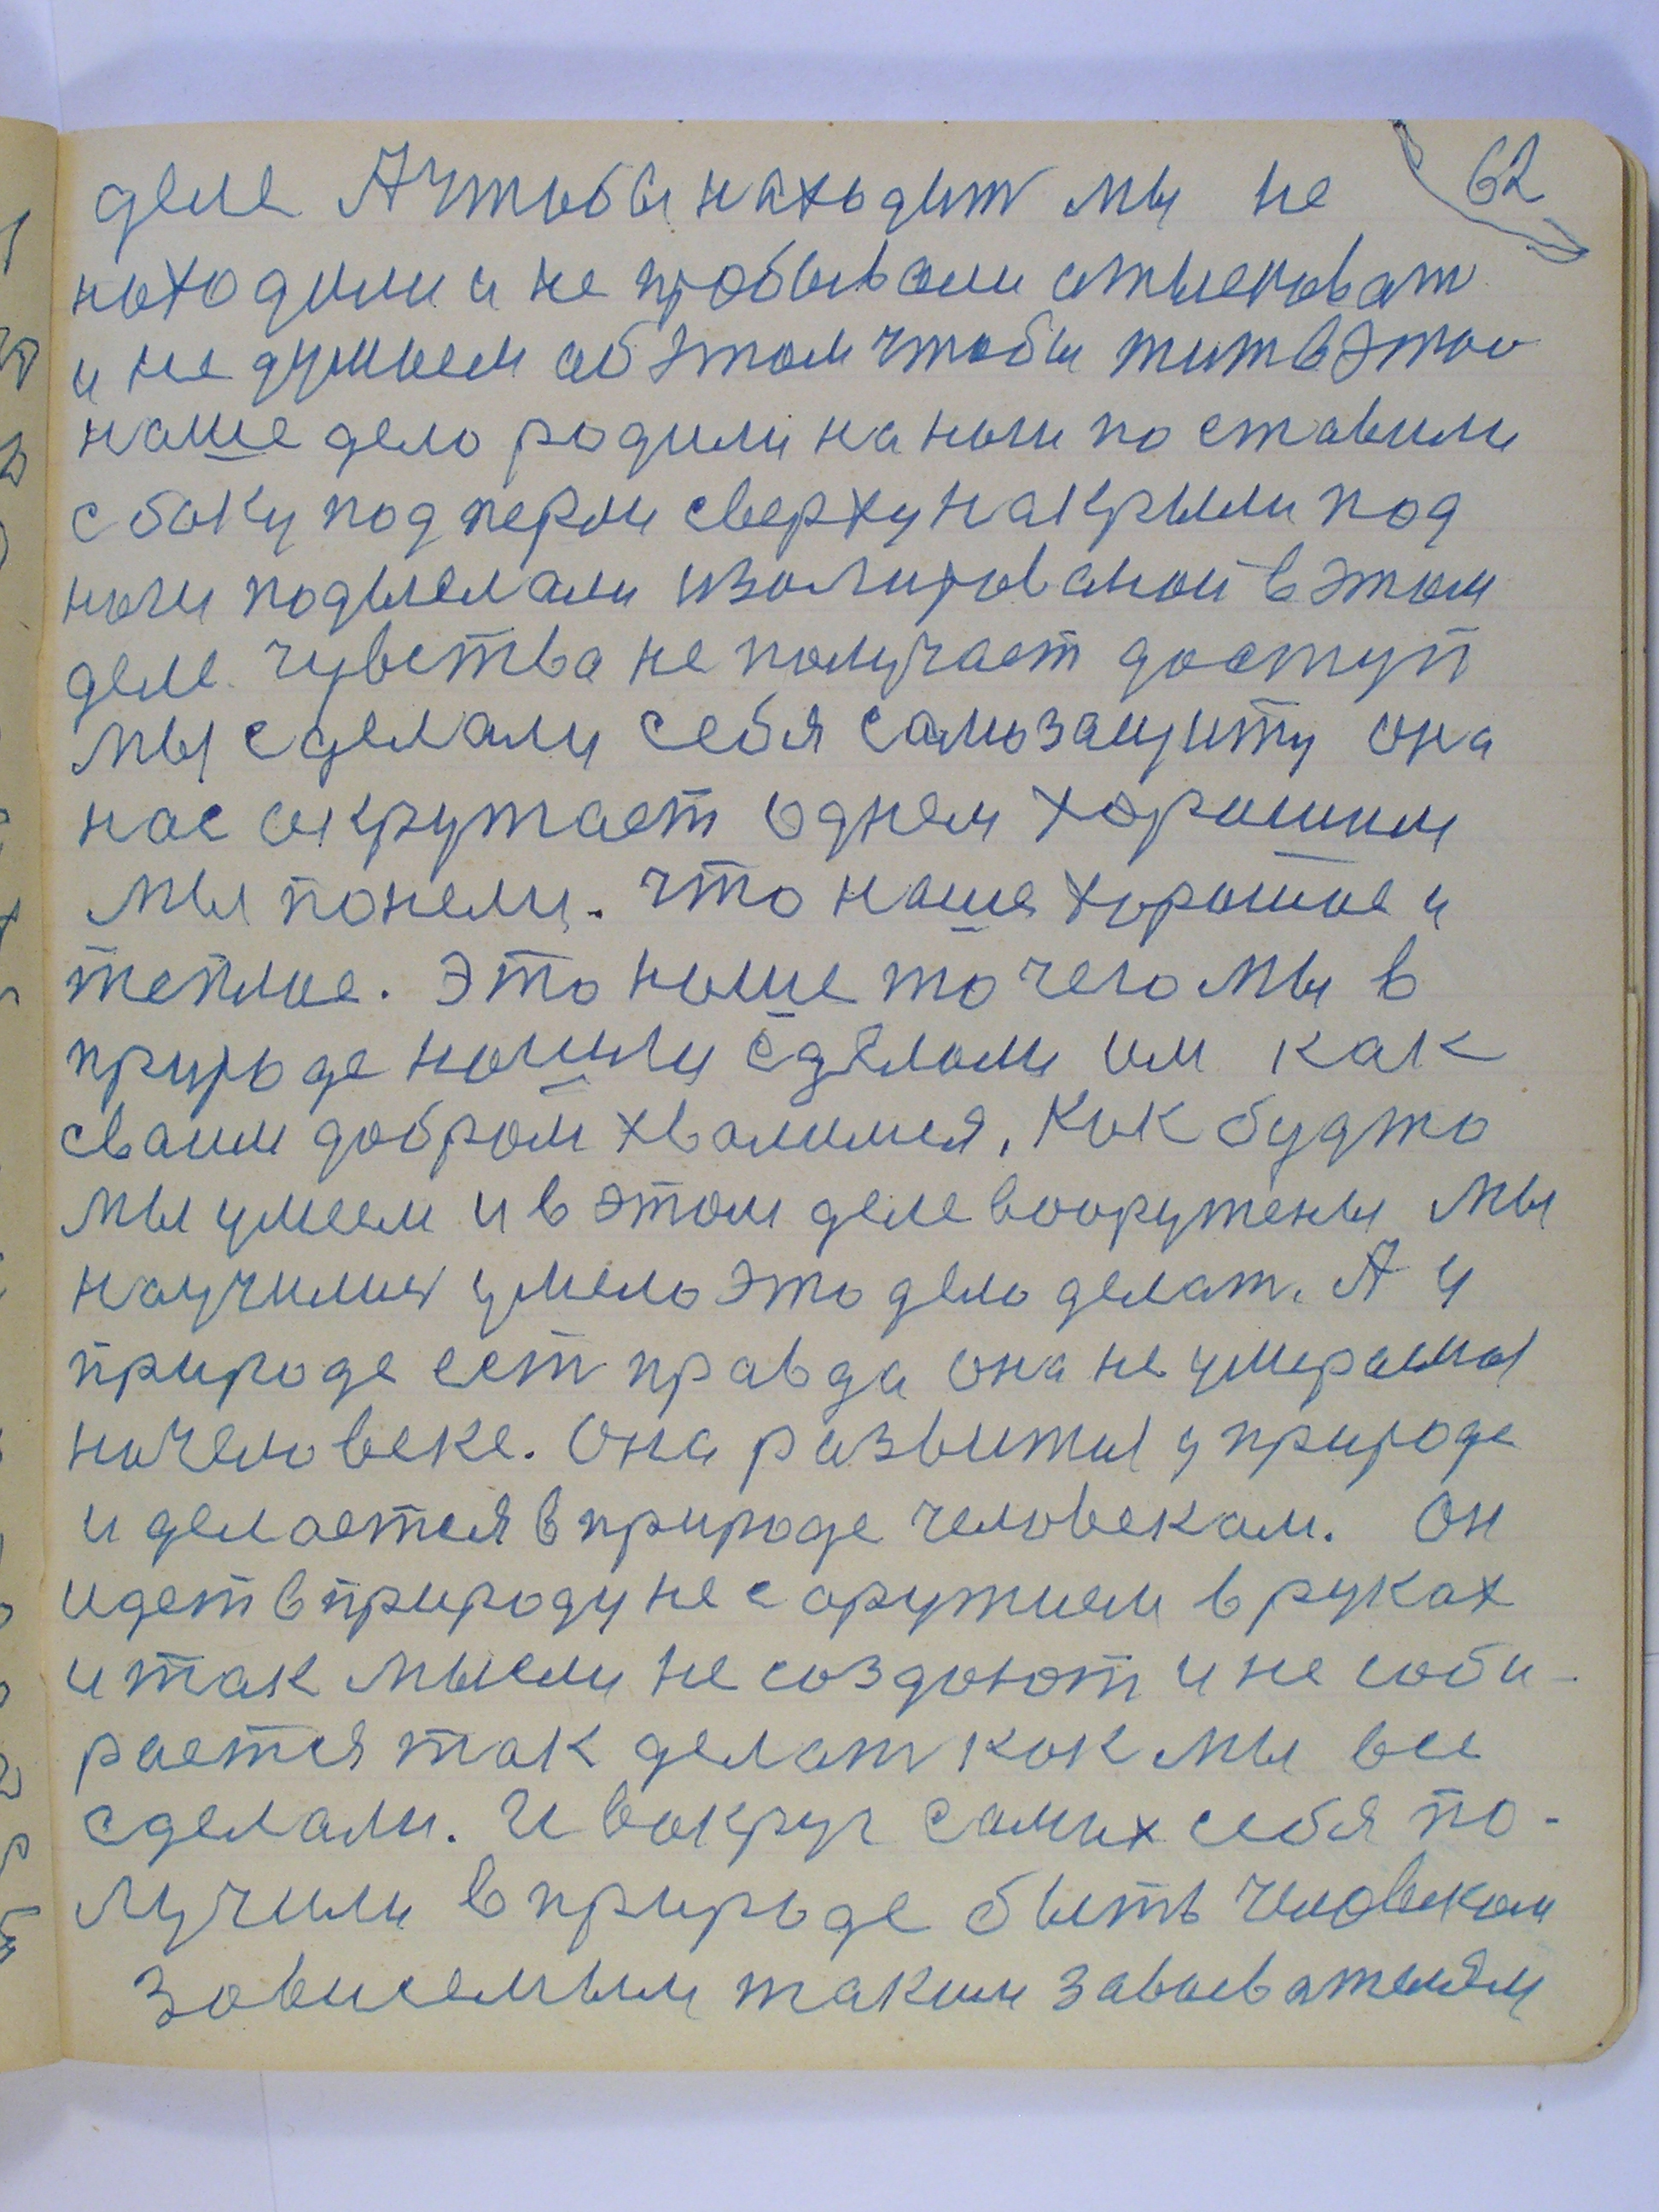 62
деле А чтобы находит мы не
находили и не пробывали отысковат
и не думаем об этом чтобы жит в этом
наше дело родили на ноги поставили
с боку подперли сверху накрыли под
ноги подделали изолированой в этом
деле чувства не получает доступ
мы сделали себя самозащиту она
нас окружает однем хорошим
мы понели. что наше хорошое и
теплое. Это наше то чего мы в
природе нашли сделали им как
сваим добром хвалимся. Как будто
мы умеем и в этом деле вооружены мы
научились умело это дело делат. А у
природе ест правда она не умерает
на человеке. Она развита у природе
и делается в природе человекам. Он
идет в природу не с оружием в руках
и так мысли не создают и не соби-
рается так делат как мы все
сделали. И вокруг самих себя по-
лучили в природе быть человеком
зависемым таким завоевателем